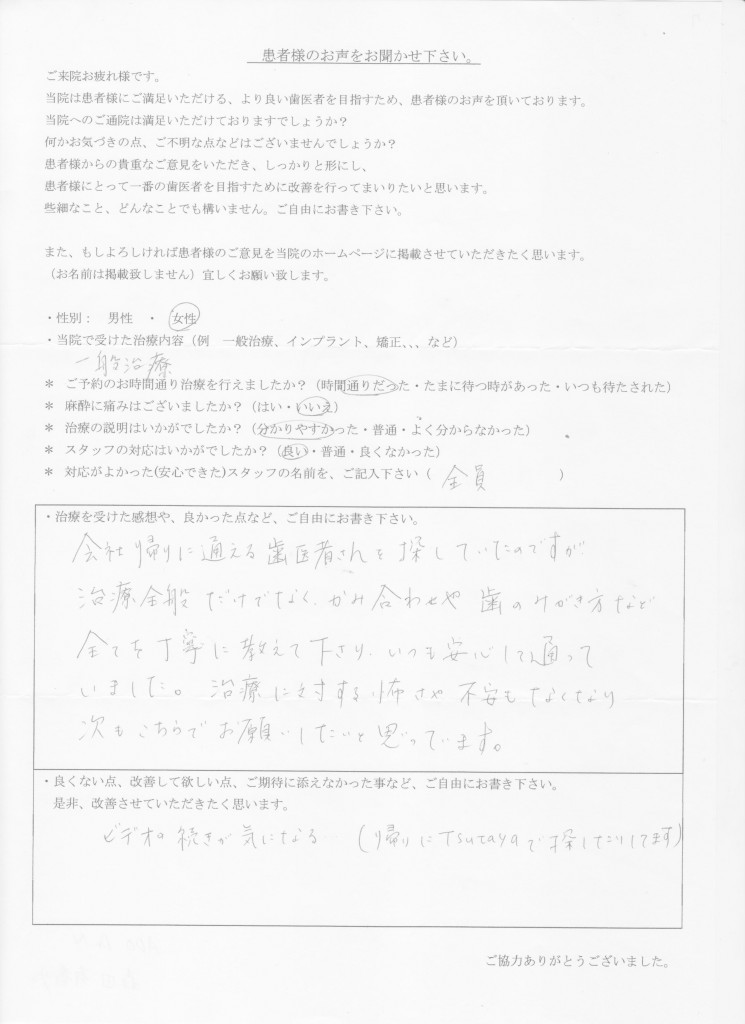 患者様のお声をお聞かせ下さい。
ご来院お疲れ様です。
当院は患者様にご満足いただける、より良い歯医者を目指すため、患者様のお声を頂いております。
当院へのご通院は満足いただけておりますでしょうか？
何かお気づきの点、ご不明な点などはございませんでしょうか？
患者様からの貴重なご意見をいただき、しっかりと形にし、
患者様にとって一番の歯医者を目指すために改善を行ってまいりたいと思います。
些細なこと、どんなことでも構いません。ご自由にお書き下さい。
また、もしよろしければ患者様のご意見を当院のホームページに掲載させていただきたく思います。
（お名前は掲載致しません）宜しくお願い致します。
・性別：　男性　・　女性
・当院で受けた治療内容（例　一般治療、インプラント、矯正、、、など）
一般治療
＊　ご予約のお時間通り治療を行えましたか？（時間通りだった・たまに待つ時があった・いつも待たされた）
＊　麻酔に痛みはございましたか？（はい・いいえ）
＊　治療の説明はいかがでしたか？（分かりやすかった・普通・よく分からなかった）
＊　スタッフの対応はいかがでしたか？（良い・普通・良くなかった）
＊　対応がよかった(安心できた)スタッフの名前を、ご記入下さい（　全員　）
・治療を受けた感想や、良かった点など、ご自由にお書き下さい。
会社帰りに通える歯医者さんを探していたのですが
治療全般だけでなく、かみ合わせや歯のみがき方など
全てを丁寧に教えて下さり、いつも安心して通って
いました。治療に対する怖さや不安もなくなり
次もこちらでお願いしたいと思っています。
・良くない点、改善して欲しい点、ご期待に添えなかった事など、ご自由にお書き下さい。
是非、改善させていただきたく思います。
ビデオの続きが気になる　（帰りにTsutayaで探したりしてます）
ご協力ありがとうございました。